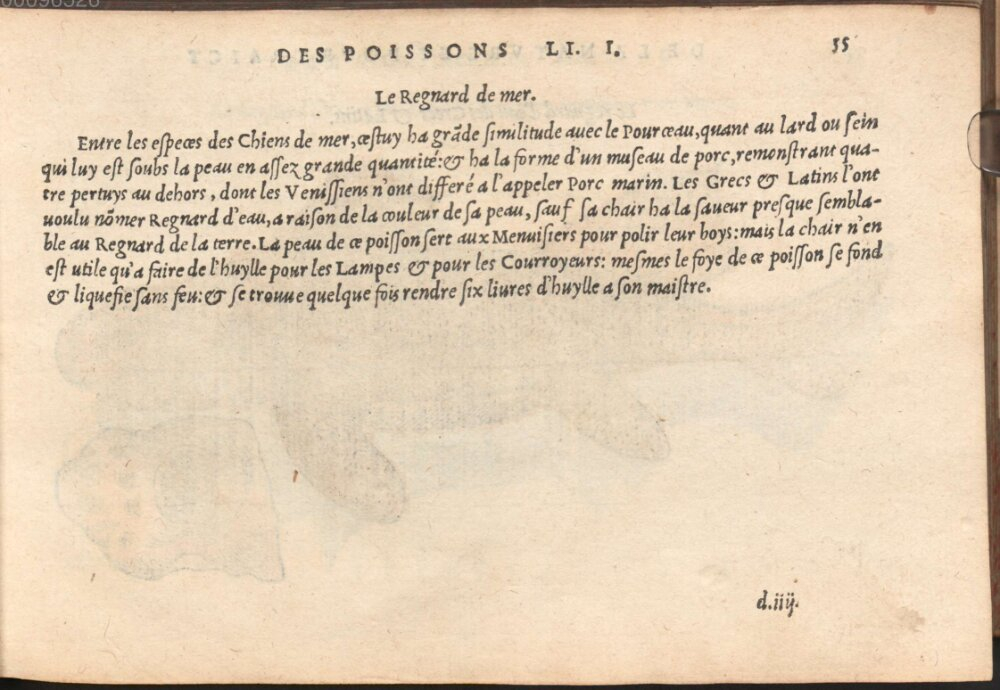 DES POISSONS LI. I. 55
Le Regnard de mer.
Entre les especes des Chiens de mer, cestuy ha grãde similitude auec le Pourceau, quant au lard ou sein
qui luy est soubs la peau en assez grande quantité: & ha la forme d'un museau de porc, remonstrant qua-
tre pertuys au dehors, dont les Venissiens n'ont differé a l'appeler Porc marin. Les Grecs & Latins l'ont
uoulu nõmer Regnard d'eau, a raison de la couleur de sa peau, sauf sa chair ha la saueur presque sembla-
ble au Regnard de la terre. La peau de ce poisson sert aux Menuisiers pour polir leur boys: mais la chair n'en
est utile qu'a faire de l'huylle pour les Lampes & pour les Courroyeurs: mesmes le foye de ce poisson se fond
& liquefie sans feu: & se trouue quelque fois rendre six liures d'huylle a son maistre.
d.iiij.